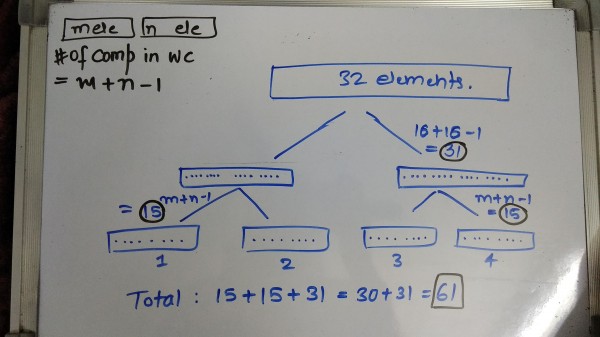 mele n ele
# of comp in wc
= m+n-1
32 elements.
16+16-1
= 31
m+n-1
= 15
m+n-1
= 15
1 2 3 4
Total : 15+15+31 = 30+31 = 61